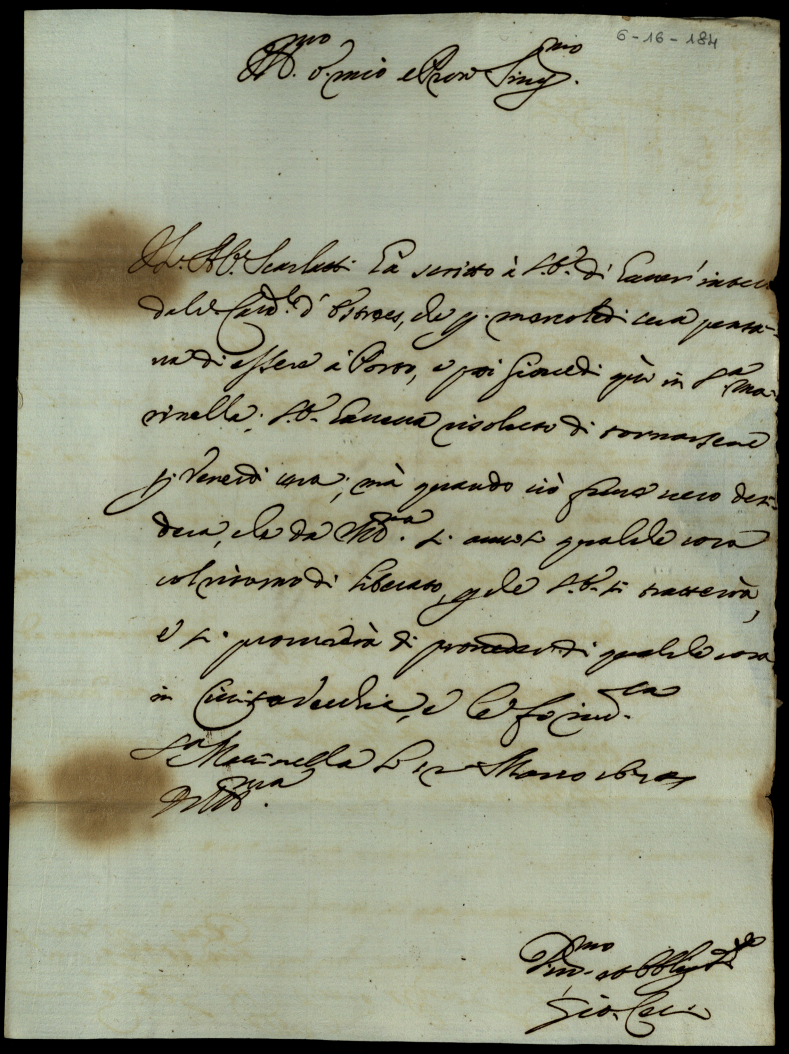 6-16-184
Ill.mo S.r mio e Pron Sing.mo
Il S.r Ab.e Scarlatti hà scritto à S.E. di haver inteso
dal S.r Card.le d'Estrees, che p. mercoledi sera pensa-
va di essere à Porto, e poi Giovedi quì in S.ta Ma-
rinella; S.E. haveva risoluto di tornarsene
p. Venerdi sera; mà quando ciò fusse vero desi-
dera, che da V.S. Ill.ma si mandi qualche cosa
col ritorno di Liberato, p. che S.E. si tratterrà,
e si procurerà di provedere di qualche cosa
in Civitavecchia, e le fò riv.za
S.ta Marinella li Marzo
D. V.S. Ill.ma
Dev.mo et Obblig.mo
Gio.